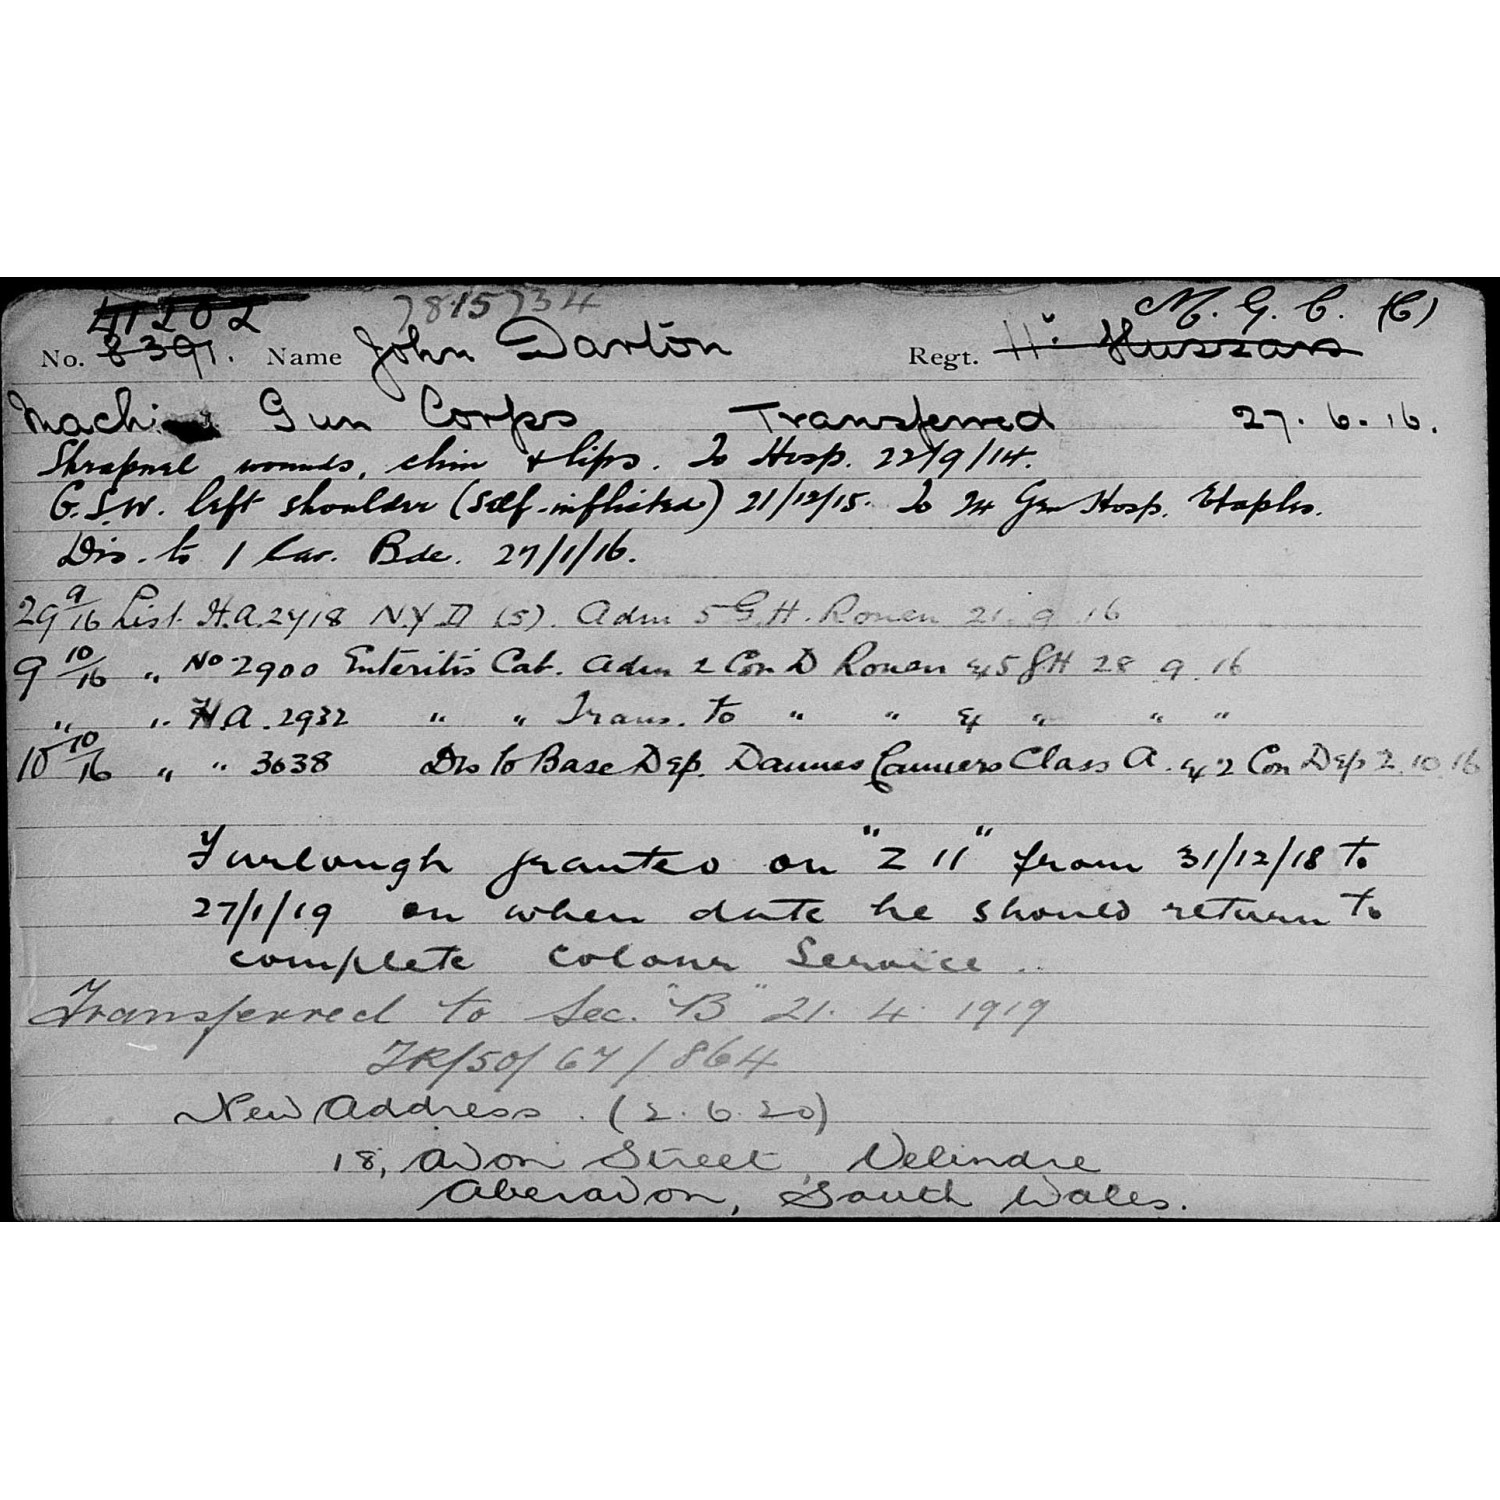 41202 7815734 M. G. C. (C)
No. 8391. Name John Darton Regt. 11th Hussars
Machine Gun Corps Transferred 27. 6. 16.
Shrapnel wounds, chin & lips. To Hosp. 22/9/14.
G.S.W. left shoulder (Self-inflicted) 21/12/15. To 24 Gen Hosp. Etaples.
Dis. to 1 Cav. Bde. 27/1/16.
29 9/16 List H.A. 2718 N.Y.D (5). Adm 5 G.H. Rouen 21. 9. 16
9 10/16 " No 2900 Enteritis Cat. Adm 2 Con D Rouen ex 5 GH 28 9. 16
" " H.A. 2932 " " Trans. to " " ex " " "
10 10/16 " " 3638 Dis to Base Dep. Dannes Camiers Class A. ex 2 Con Dep 2. 10. 16
Furlough granted on "Z 11" from 31/12/18 to
27/1/19 on when date he should return to
complete Colour Service.
Transferred to Sec. "B" 21. 4. 1919
ZR/50/67/864
New Address. (2. 6. 20)
18, Avon Street Velindre
Aberavon, South Wales.